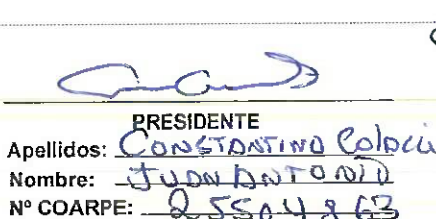 PRESIDENTE
Apellidos: CONSTANTINO Colocci
Nombre: JUAN ANTONIO
Nº COARPE: 25504863